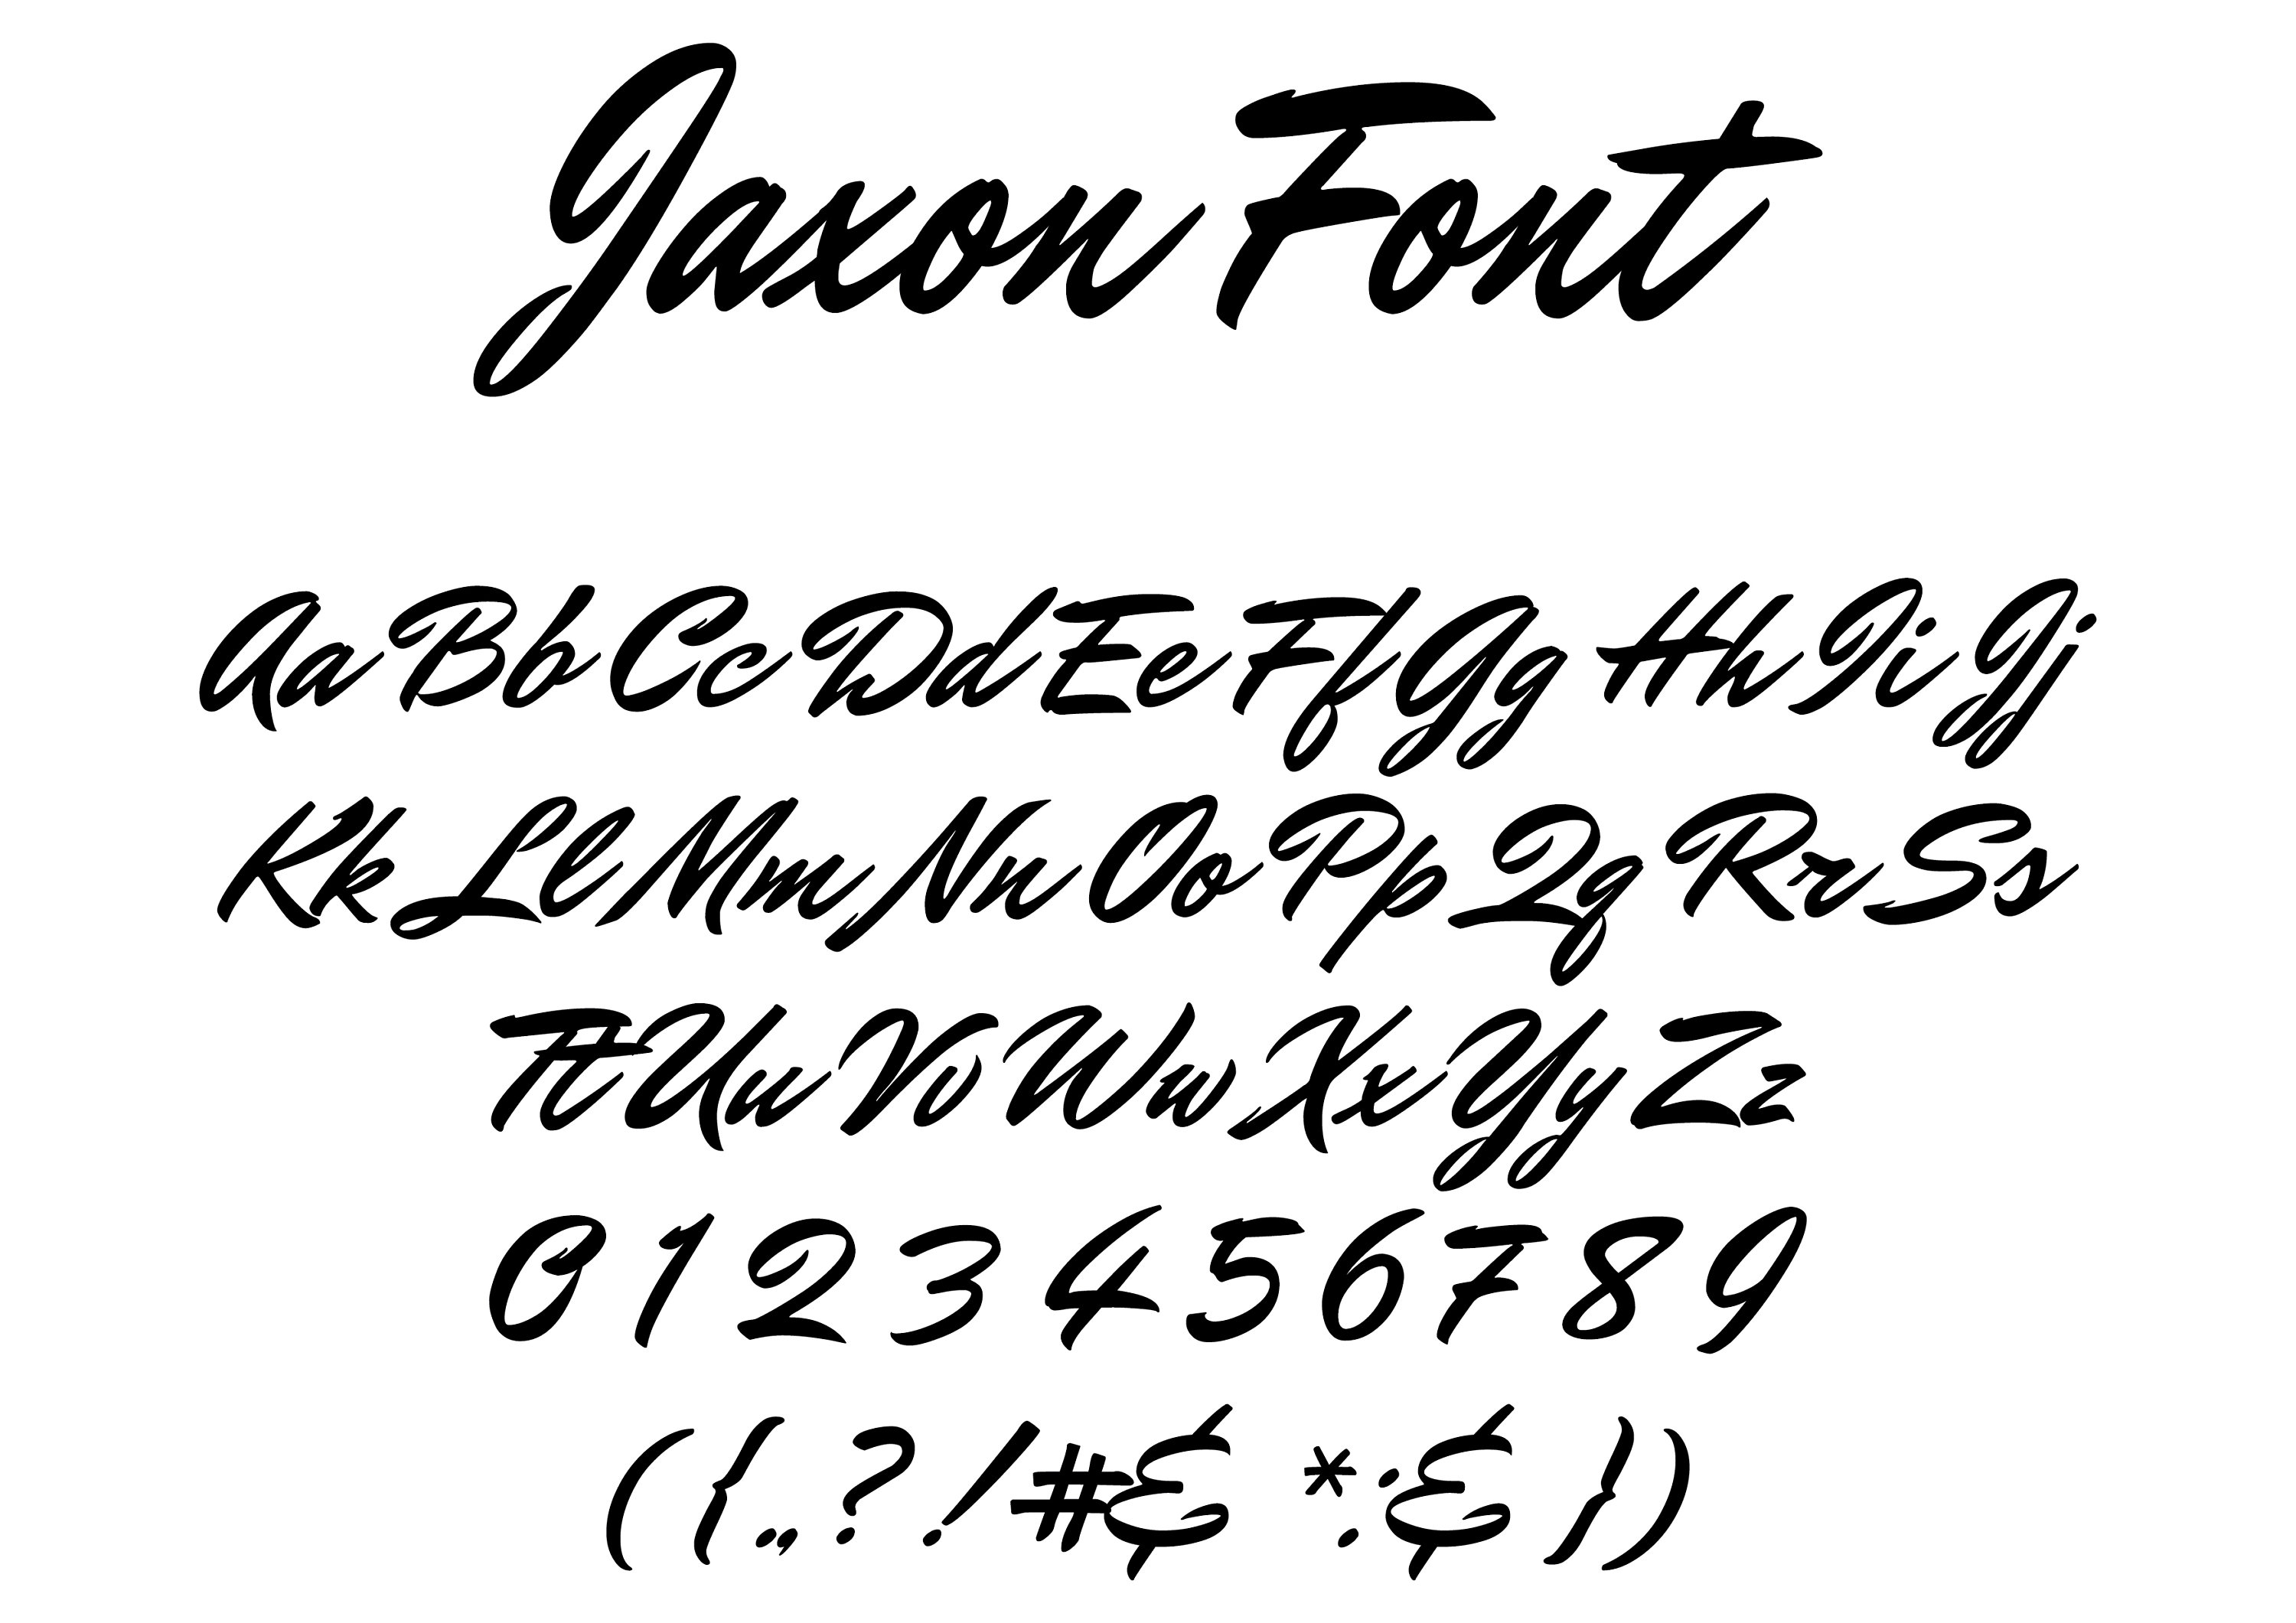 Jaxon Font
AaBbCcDdEeFfGgHhIiJj
KkLlMmNnOoPpQqRrSs
TtUuVvWwXxYyZz
0123456789
({.,?!#& *:&})